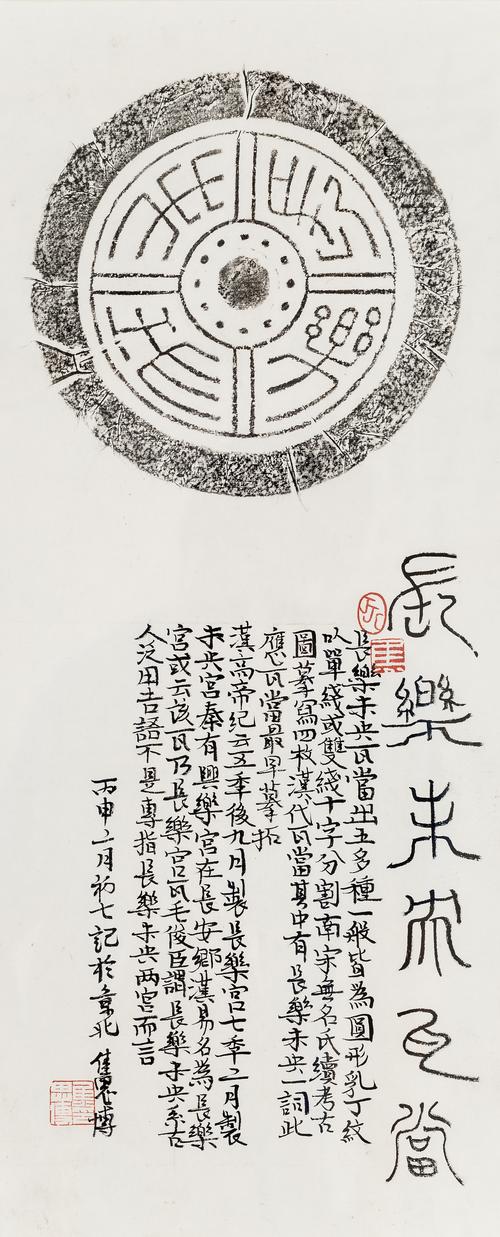 長樂
未央
長樂未央瓦當
長樂未央瓦當出土多種一般皆為圓形乳丁紋
以單綫或雙綫十字分割南宋無名氏續考古
圖摹寫四枚漢代瓦當其中有長樂未央一詞此
應瓦當最早摹拓
漢高帝纪云五季後九月製長樂宮七季二月製
未央宮秦有興樂宮在長安鄉漢易名為長樂
宮或云该瓦乃長樂宮瓦毛俊臣謂長樂未央系古
人泛用吉語不是專指長樂未央两宮而言
丙申二月初七記於京北